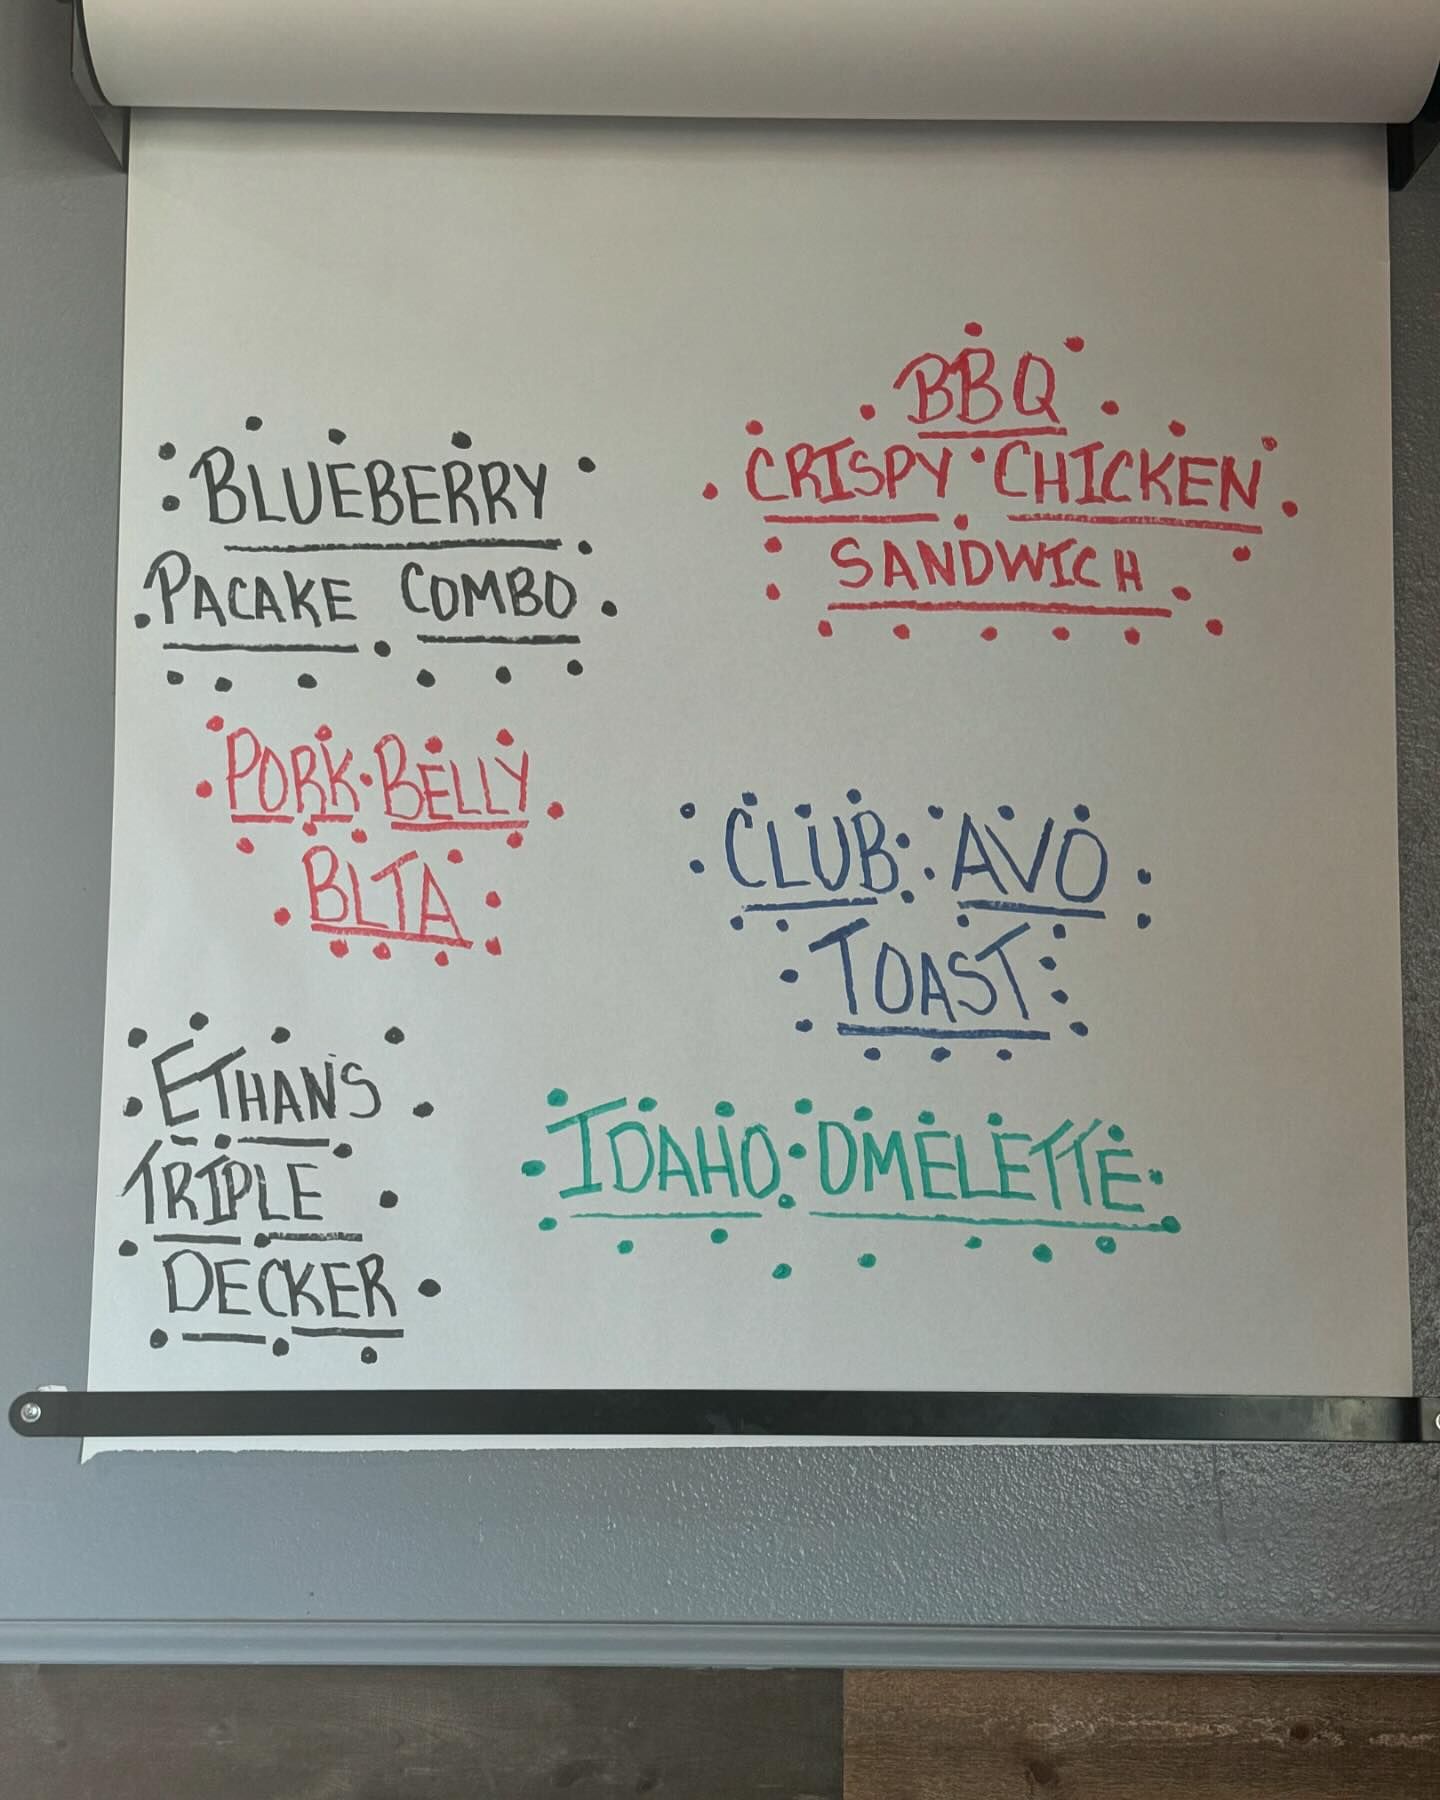 BLUEBERRY
PACAKE COMBO
BBQ
CRISPY CHICKEN
SANDWICH
PORK BELLY
BLTA
CLUB AVO
TOAST
ETHAN'S
TRIPLE
DECKER
IDAHO OMELETTE